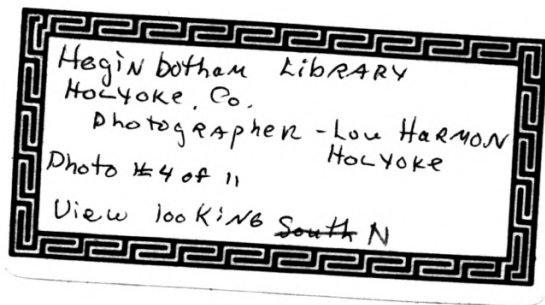 Heginbotham LibRARY
HOLYOKe, Co.
PhotogRAPheR - Lou HaRMON
HOLYOKe
Photo #4 of 11
View looKiNG ~~South~~ N